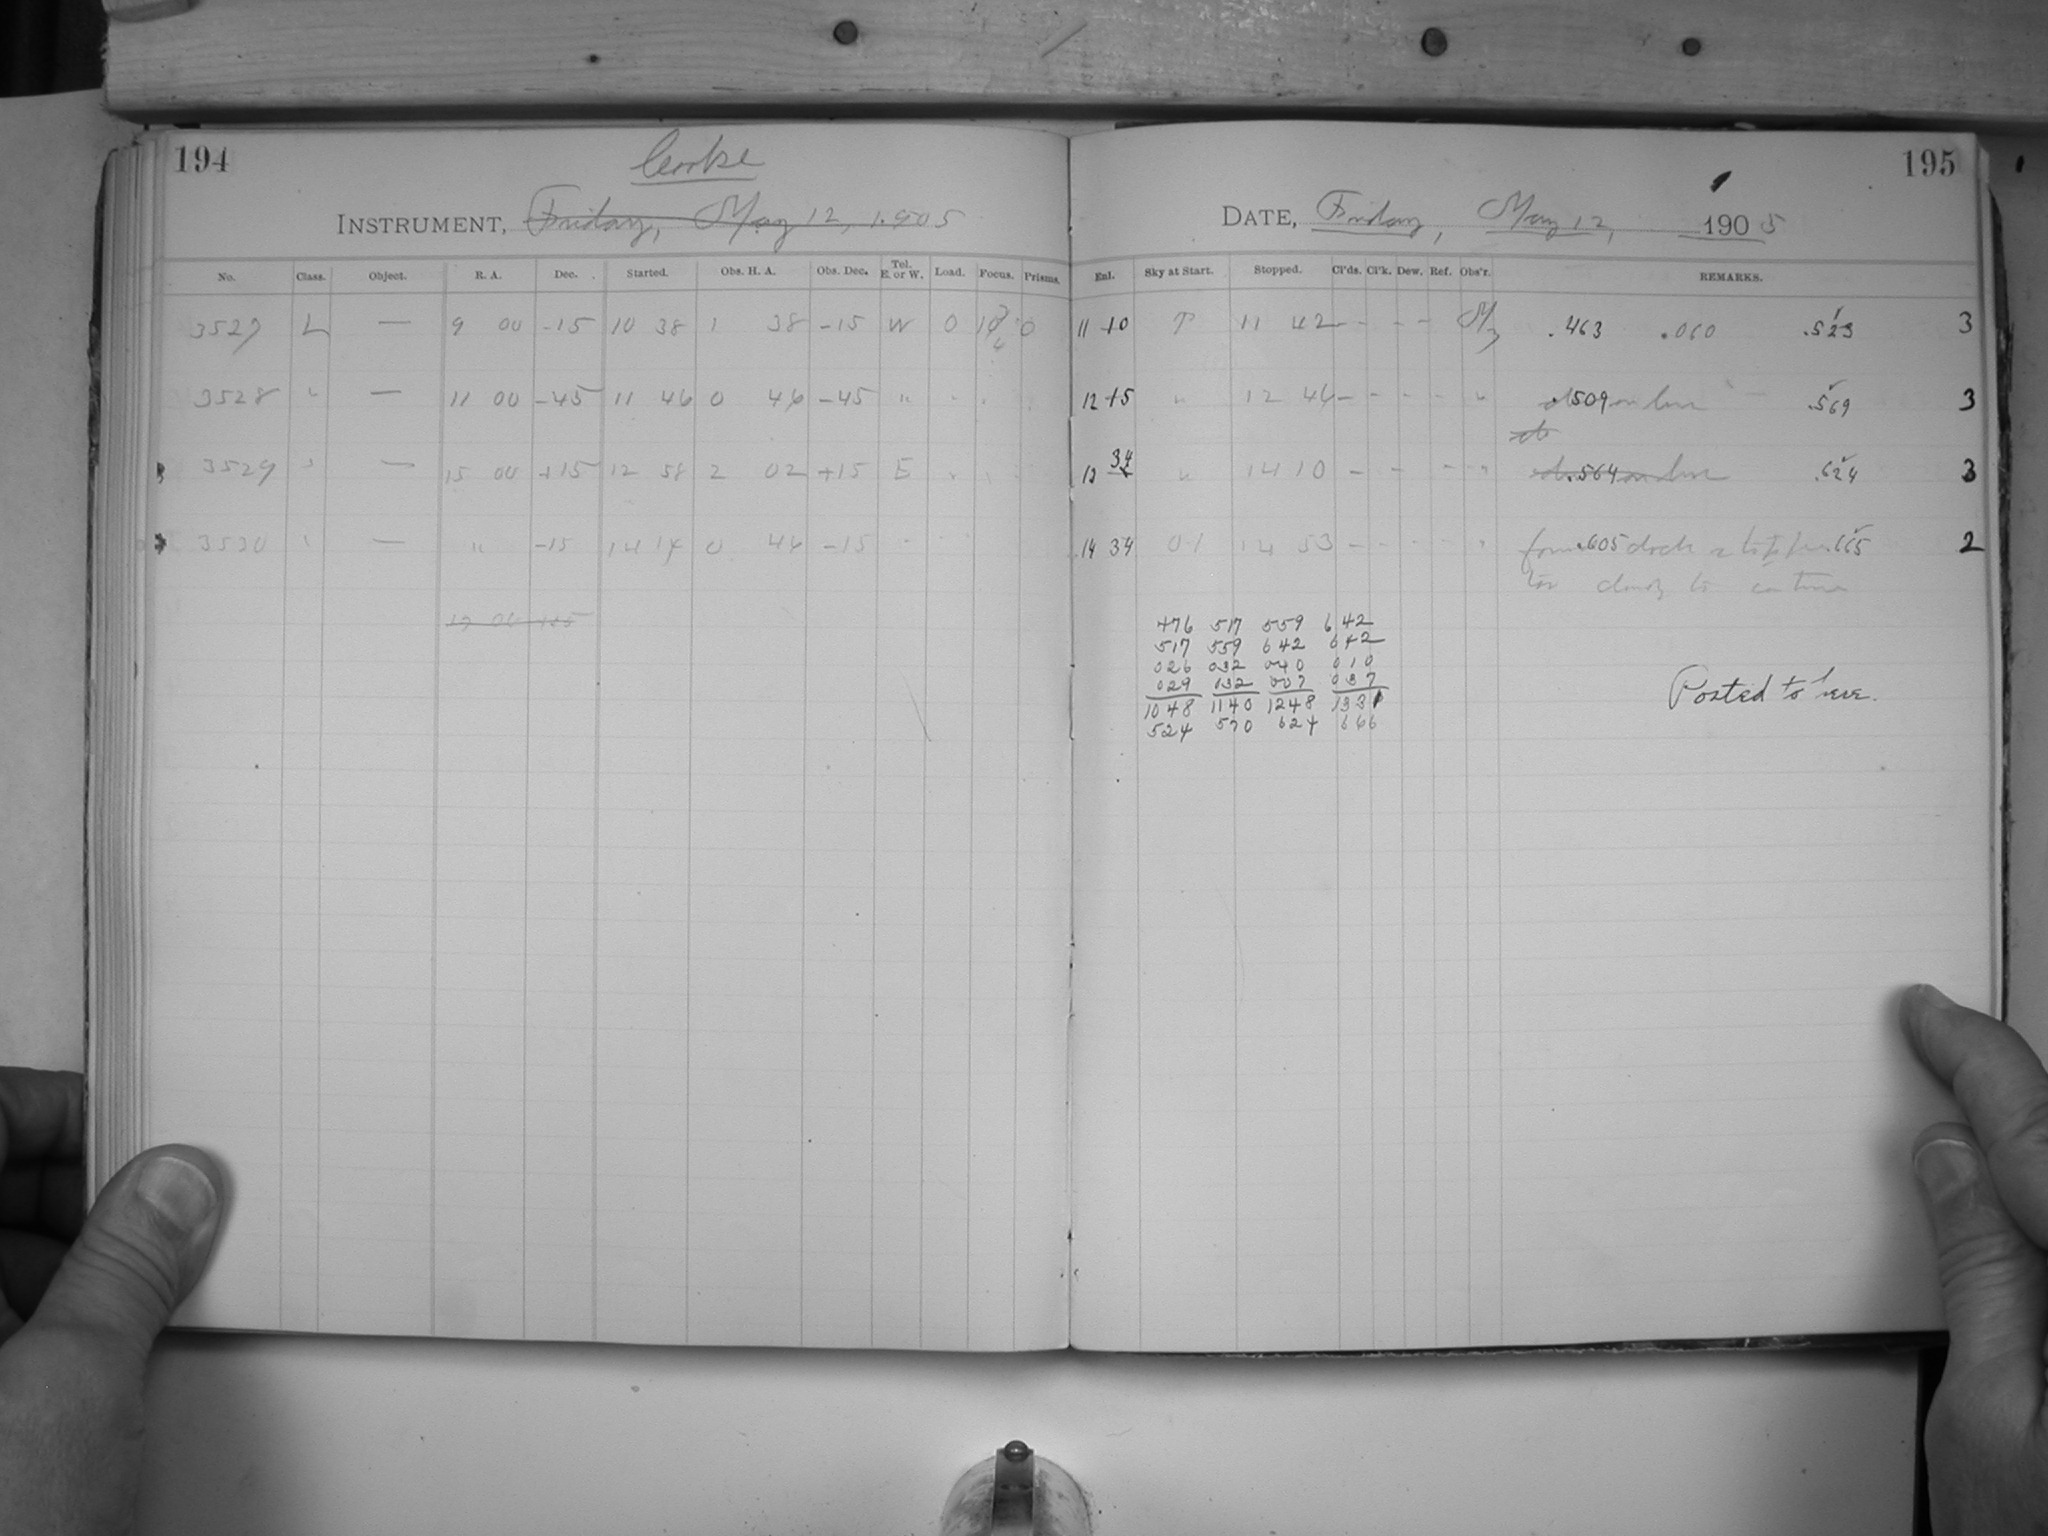 194
Cooke
INSTRUMENT, Friday, May 12, 1905
No. Class. Object. R. A. Dec. Started. Obs. H. A. Obs. Dec. Tel. E. or W. Load. Focus. Prisms.
3527 L — 9 00 -15 10 38 1 38 -15 W 0 10 0
3528 " — 11 00 -45 11 46 0 46 -45 "
3529 " — 15 00 +15 12 58 2 02 +15 E
3530 " — " -15 14 14 0 46 -15
195
DATE, Friday, May 12, 1905
Enl. Sky at Start. Stopped. Cl'ds. Cl'k. Dew. Ref. Obs'r. REMARKS.
11 +0 11 42 - - - - .463 .060 .523 3
12 +5 " 12 46 - - - - " .509 .569 3
13 34 " 14 10 - - - " .564 .624 3
14 34 01 14 53 - - - - " .605 clock .665 2
too cloudy to continue
476 517 559 642
517 559 642 642
026 032 040 010
029 132 007 037
1048 1140 1248 1331
524 570 624 666
Posted to here.